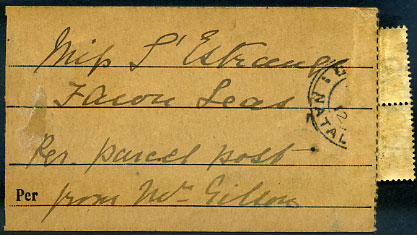 Miss L'Estrange
Fawn Leas
Per parcel post
Per from Mr Gibson
NATAL